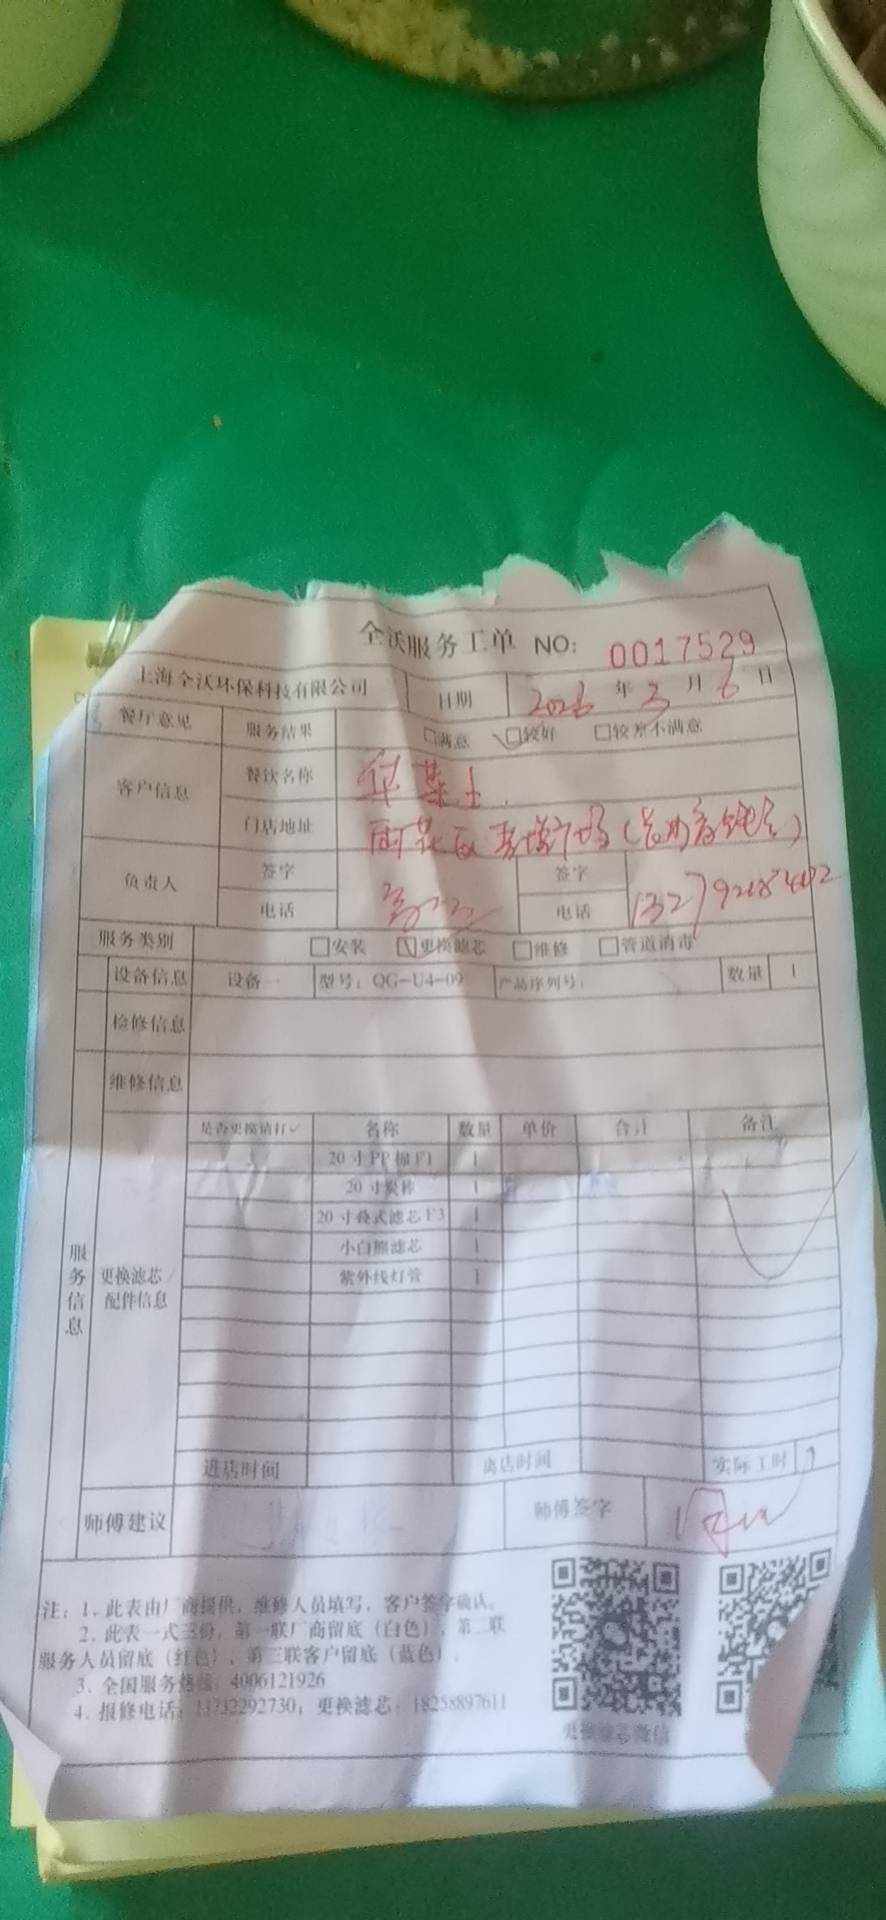 全沃服务工单 NO: 0017529
上海全沃环保科技有限公司 日期 2026 年 3 月 6 日
餐厅意见 服务结果 □满意 □较好 □较差不满意
客户信息 餐饮名称
门店地址 雨花区
负责人 签字 签字
电话 电话
服务类别 □安装 □更换滤芯 □维修 □管道消毒
设备信息 设备一 型号：QG-U4-09 产品序列号： 数量 1
检修信息
维修信息
服务信息
更换滤芯/配件信息
是否更换请打✓ 名称 数量 单价 合计 备注
20寸PP棉F1 1
20寸炭棒 1
20寸叠式滤芯F3 1
小白熊滤芯 1
紫外线灯管 1
进店时间 离店时间 实际工时
师傅建议 师傅签字
注：1. 此表由厂商提供，维修人员填写，客户签字确认。
2. 此表一式三份，第一联厂商留底（白色），第二联
服务人员留底（红色），第三联客户留底（蓝色）。
3. 全国服务热线：4006121926
4. 报修电话：13732292730；更换滤芯：18258897611
更换滤芯微信